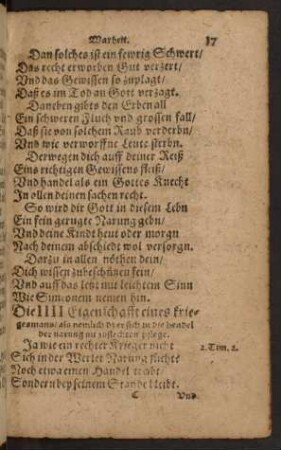 Warheit. 17
Dan solches ist ein fewrig Schwert/
Das recht erworben Gut verzert/
Vnd das Gewissen so zuplagt/
Daß es im Tod an Gott verzagt.
Daneben gibts den Erben all
Ein schweren Fluch vnd grossen fall/
Daß sie von solchem Raub verderbn/
Vnd wie verworffne Leute sterbn.
Derwegen dich auff deiner Reiß
Eins richtigen Gewissens fleiß/
Vnd handel als ein Gottes Knecht
In allen deinen sachen recht.
So wird dir Gott in diesem Lebn
Ein fein gerugte Narung gebn/
Vnd deine Kindt heut oder morgn
Nach deinem abschiedt wol versorgn.
Darzu in allen nöthen dein/
Dich wissen zubeschützen fein/
Vnd auff das letzt mit leichtem Sinn
Wie Simeonem nemen hin.
Die IIII Eigenschafft eines krie-
gesmans/ als nemlich dz er sich in die hendel
der narung nit zuflechten pflege.
Ja wie ein rechter Krieger nicht 2. Tim. 2.
Sich in der Werlet Narung flichte
Noch etwa einen Handel treibt
Sondern bey seinem Stande bleibt.
C Vnd